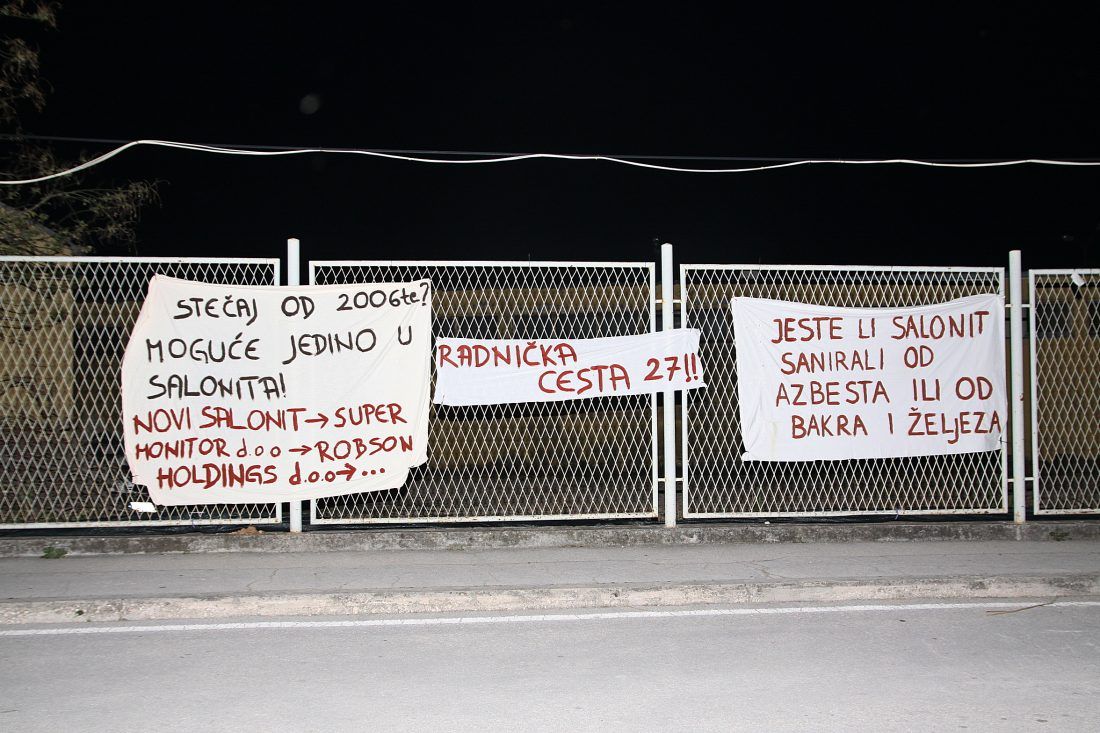 STEČAJ OD 2006te?
MOGUĆE JEDINO U
SALONITA!
NOVI SALONIT→SUPER
MONITOR d.o.o→ROBSON
HOLDINGS d.o.o→...
RADNIČKA
CESTA 27!!
JESTE LI SALONIT
SANIRALI OD
AZBESTA ILI OD
BAKRA I ŽELJEZA